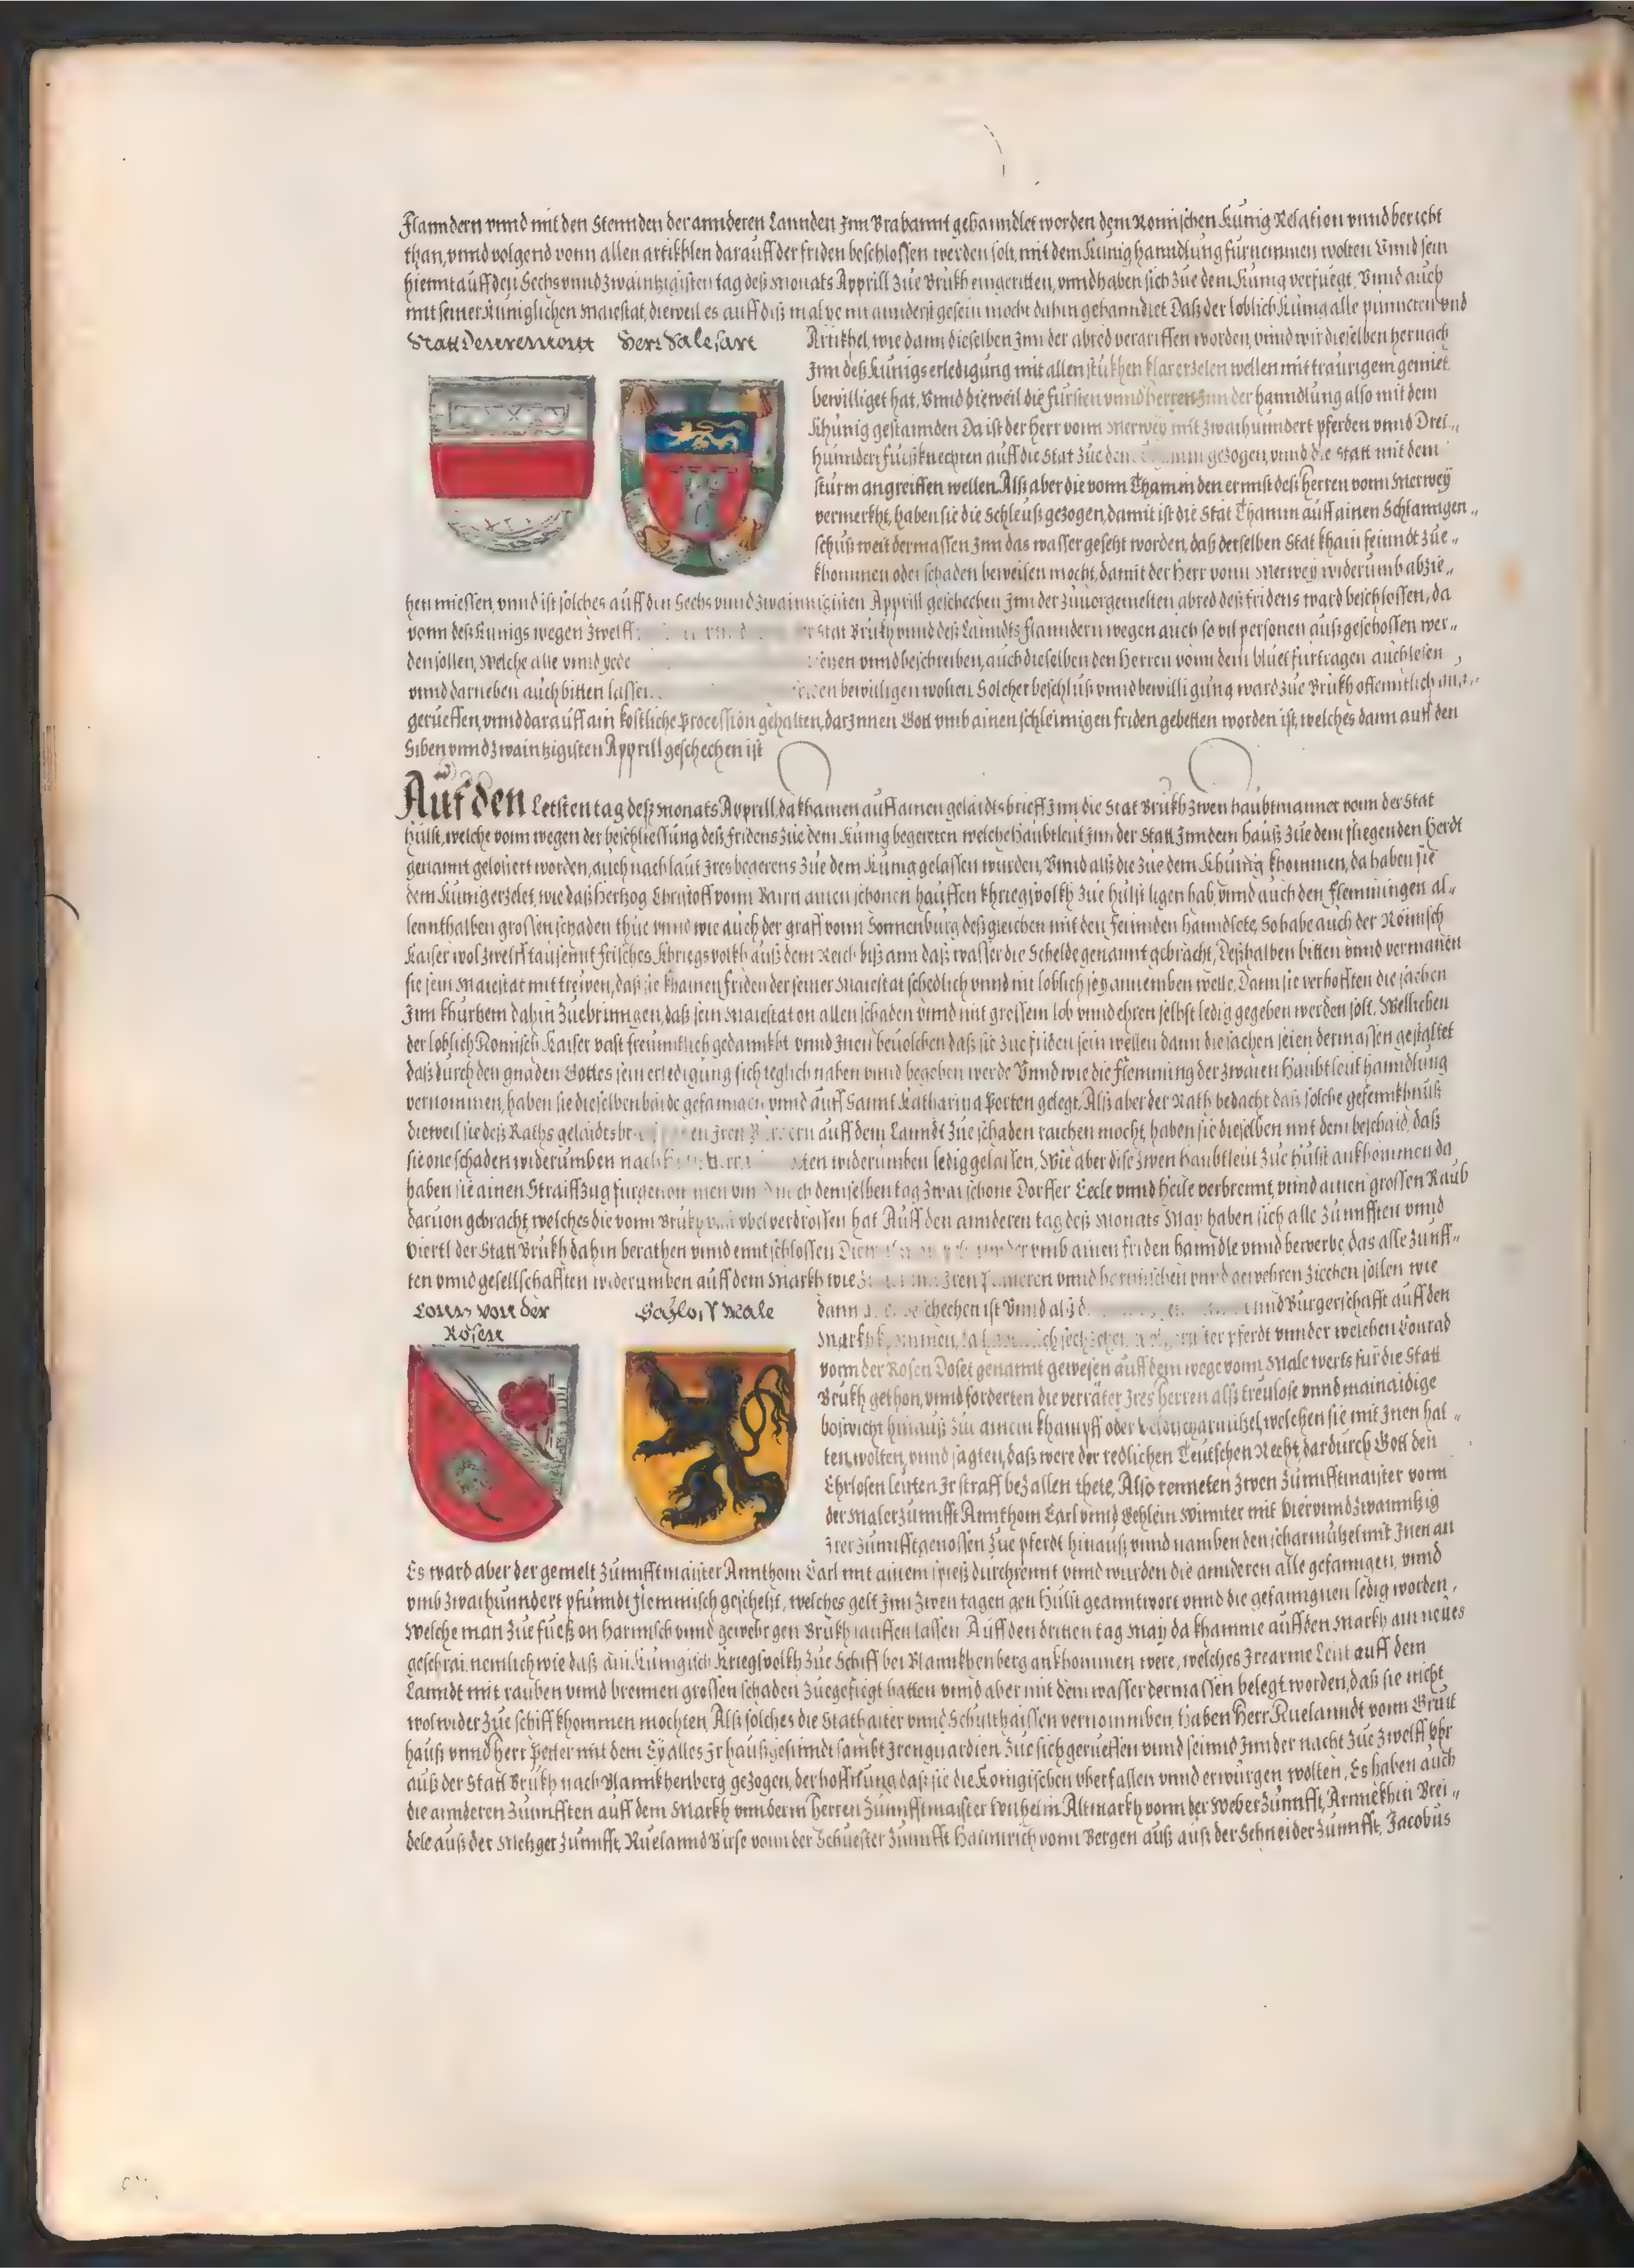 Flanndern vnnd mit den Stennden der annderen Lannden Inn Brabannt gehanndlet worden dem Römischen Künig Relation vnnd bericht
than, vnnd volgend vonn allen artikhlen darauff der friden beschlossen werden solt, mit dem Künig hanndlung fürnemmen wolten Vnnd sein
hiemit auff den Sechs vnnd Zwaintzigisten tag deß Monats Apprill Zue Brükh eingeritten, vnnd haben sich Zue dem Künig verfüegt, Vnnd auch
mit seiner Küniglichen Maiestat, dieweil es auff diß mal ye nit annderst gesein mocht dahin gehanndlet Daß der loblich Künig alle puncten vnd
Statt Denremont Herr Salesart
Artikhel, wie dann dieselben Inn der abred vergriffen worden, vnnd wir dieselben hernach
Inn deß Künigs erledigung mit allen stukhen klar erzelen wellen mit traurigem gemiet
bewilliget hat, Vnnd dieweil die Fürsten vnnd Herren Inn der hanndlung also mit dem
Khünig gestannden Da ist der Herr vonn Merwey mit Zwaihunndert pferden vnnd Drei„
hünndert fueßknechten auff die Stat Zue dem gezogen, vnnd die Statt mit dem
stürm angreiffen wellen. Alß aber die vonn Thamm den ernnst deß Herren vonn Merwey
vermerkht, haben sie die Schleuß gezogen, damit ist die Stat Thamm auff ainen Schlanngen„
schüß weit dermassen Inn das wasser gesetzt worden, daß derselben Stat khain feinndt Zue„
khommen oder schaden beweisen mocht, damit der Herr vonn Merwey widerumb abzie„
hen miessen, vnnd ist solches auff den Sechs vnnd Zwaintzigisten Apprill geschechen Inn der Zuuorgemelten abred deß fridens ward beschlossen, da
vonn deß Künigs wegen Zwelff Stat Brükh vnnd deß Lanndts Flanndern wegen auch so vil personen außgeschossen wer„
den sollen, Welche alle vnnd yede vnnd beschreiben, auch dieselben den Herren vonn dem bluet fürtragen auch lesen
vnnd darneben auch bitten lassen bewilligen wolten. Solcher beschluß vnnd bewilligung ward Zue Brükh offenntlich
gerueffen, vnnd darauff ain kostliche Procession gehalten, darInnen Gott vmb ainen schleinigen friden gebetten worden ist, welches dann auff den
Siben vnnd Zwaintzigisten Apprill geschechen ist
Auf den Letsten tag deß Monats Apprill, da khamen auff ainen gelaidtsbrieff Inn die Stat Brükh Zwen Haubtmanner vonn der Stat
Hülst, welche vonn wegen der beschliessung deß fridens Zue dem Künig begereten welche Haubtleut Inn der Statt Inn dem Hauß Zue dem fliegenden Herdt
genannt gelosiert worden, auch nach laut Ires begerens Zue dem Künig gelassen wurden, Vnnd alß die Zue dem Khünig khommen, da haben sie
dem Künig erzelet, wie daß Hertzog Christoff vonn Bairn ainen schonen hauffen khriegsvolkh Zue Hülst ligen hab, vnnd auch den Flemmingen al„
lennthalben grossen schaden thüe vnnd wie auch der graff vonn Sonnenburg deßgleichen mit den feinnden hanndlete, So habe auch der Römisch
Kaiser wol Zwelff tausennt frisches Khriegsvolkh auß dem Reich biß ann daß wasser die Schelde genannt gebracht, Deßhalben bitten vnnd vermanen
sie sein Maiestat mit treiven, daß sie khainen friden der seiner Maiestat schedlich vnnd nit loblich sey annemben welle, Dann sie verhofften die sachen
Inn khürtzem dahin Zuebringen, daß sein Maiestat on allen schaden vnnd mit grossem lob vnnd ehren selbst ledig gegeben werden solt, Wellichen
der loblich Römisch Kaiser vast freunntlich gedannkht vnnd Inen beuolchen daß sie Zue friden sein wellen dann die sachen seien dermassen gestaltet
daß durch den gnaden Gottes sein erledigung sich teglich nahen vnnd begeben werde Vnnd wie die Flemming der Zwaien Haubtleut hanndlung
vernommen, haben sie dieselben baide gefanngen vnnd auff Sannt Katharina Porten gelegt, Alß aber der Rath bedacht daß solche gefennkhnuß
dieweil sie deß Raths gelaidtsbr Iren auff dem Lanndt Zue schaden raichen mocht, haben sie dieselben mit dem beschaid, daß
sie one schaden widerumben widerumben ledig gelassen, Wie aber dise Zwen Haubtleut Zue Hülst ankhommen da
haben sie ainen Straiffzug fürgenommen demselben tag Zwai schone Dorffer Eecle vnnd Heile verbrennt, vnnd ainen grossen Raub
daruon gebracht, welches die vonn Brükh vbel verdrossen hat Auff den annderen tag deß Monats May haben sich alle Zünnfften vnnd
Viertl der Statt Brükh dahin berathen vnnd enntschlossen vmb ainen friden hanndle vnnd bewerbe, das alle Zünff„
ten vnnd gesellschafften widerumben auff dem Markh wie Iren vnnd harnischen vnnd gewehren Ziechen sollen wie
Conr: von der Rosen Schloss Male
dann ist Vnnd alß d vnnd Bürgerschafft auff den
Markh khommen, pferdt vnnder welchen Conrad
vonn der Rosen genannt gewesen auff dem wege vonn Male werts für die Statt
Brükh gethon, vnnd forderten die verräter Ires Herren alß treulose vnnd mainaidige
boßwicht hinauß Zu ainem khampff oder scharmützel, welchen sie mit Inen hal„
ten wolten, vnnd sagten, daß were der redlichen Teutschen Recht, dardurch Gott den
Ehrlosen leüten Ir straff bezallen thete, Also renneten Zwen Zünnfftmaister vonn
der Maler Zünnfft Annthoni Carl vnnd Gehlein Winnter mit Vier vnnd Zwainntzig
Irer Zünnfftgenossen Zue pferdt hinauß, vnnd namben den scharmützel mit Inen an
Es ward aber der gemelt Zünnfftmaister Annthoni Carl mit ainem spieß durchrennt vnnd wurden die annderen alle gefanngen, vnnd
vmb Zwaihunndert pfünndt flemmisch geschetzt, welches gelt Inn Zwen tagen gen Hülst geanntwort vnnd die gefanngnen ledig worden,
Welche man Zue fueß on harnisch vnnd gewehr gen Brükh lauffen lassen Auff den dritten tag May da khamme auff den Markh ain neües
geschrai, nemlich wie daß ain Künigisch Kriegsvolkh Zue Schiff bei Blannkhenberg ankhommen were, welches Ire arme Leut auff dem
Lanndt mit rauben vnnd brennen grossen schaden Zuegefiegt hatten vnnd aber mit dem wasser dermassen belegt worden, daß sie nicht
wol wider Zue schiff khommen mochten, Alß solches die Stathalter vnnd Schulthaissen vernommben, haben Herr Ruelanndt vonn Grütt
hauß vnnd Herr Petter mit dem Ey alles Ir haußgesinndt sambt Iren guardien Zue sich gerueffen vnnd seinnd Inn der nacht Zue Zwelff Vhr
auß der Statt Brükh nach Blannkhenberg gezogen, der hoffnung daß sie die Königischen vberfallen vnnd erwürgen wolten, Es haben auch
die annderen Zünnfften auff dem Markh vnnder Irn Herren Zünnfftmaister Wilhelm Altmarkh vonn der Weber Zünnfft, Annekhin Brei„
dele auß der Metzger Zünnfft, Ruelannd Birse vonn der Schuester Zünnfft Hainnrich vonn Bergen auß auß der Schneider Zünnfft, Jacobus